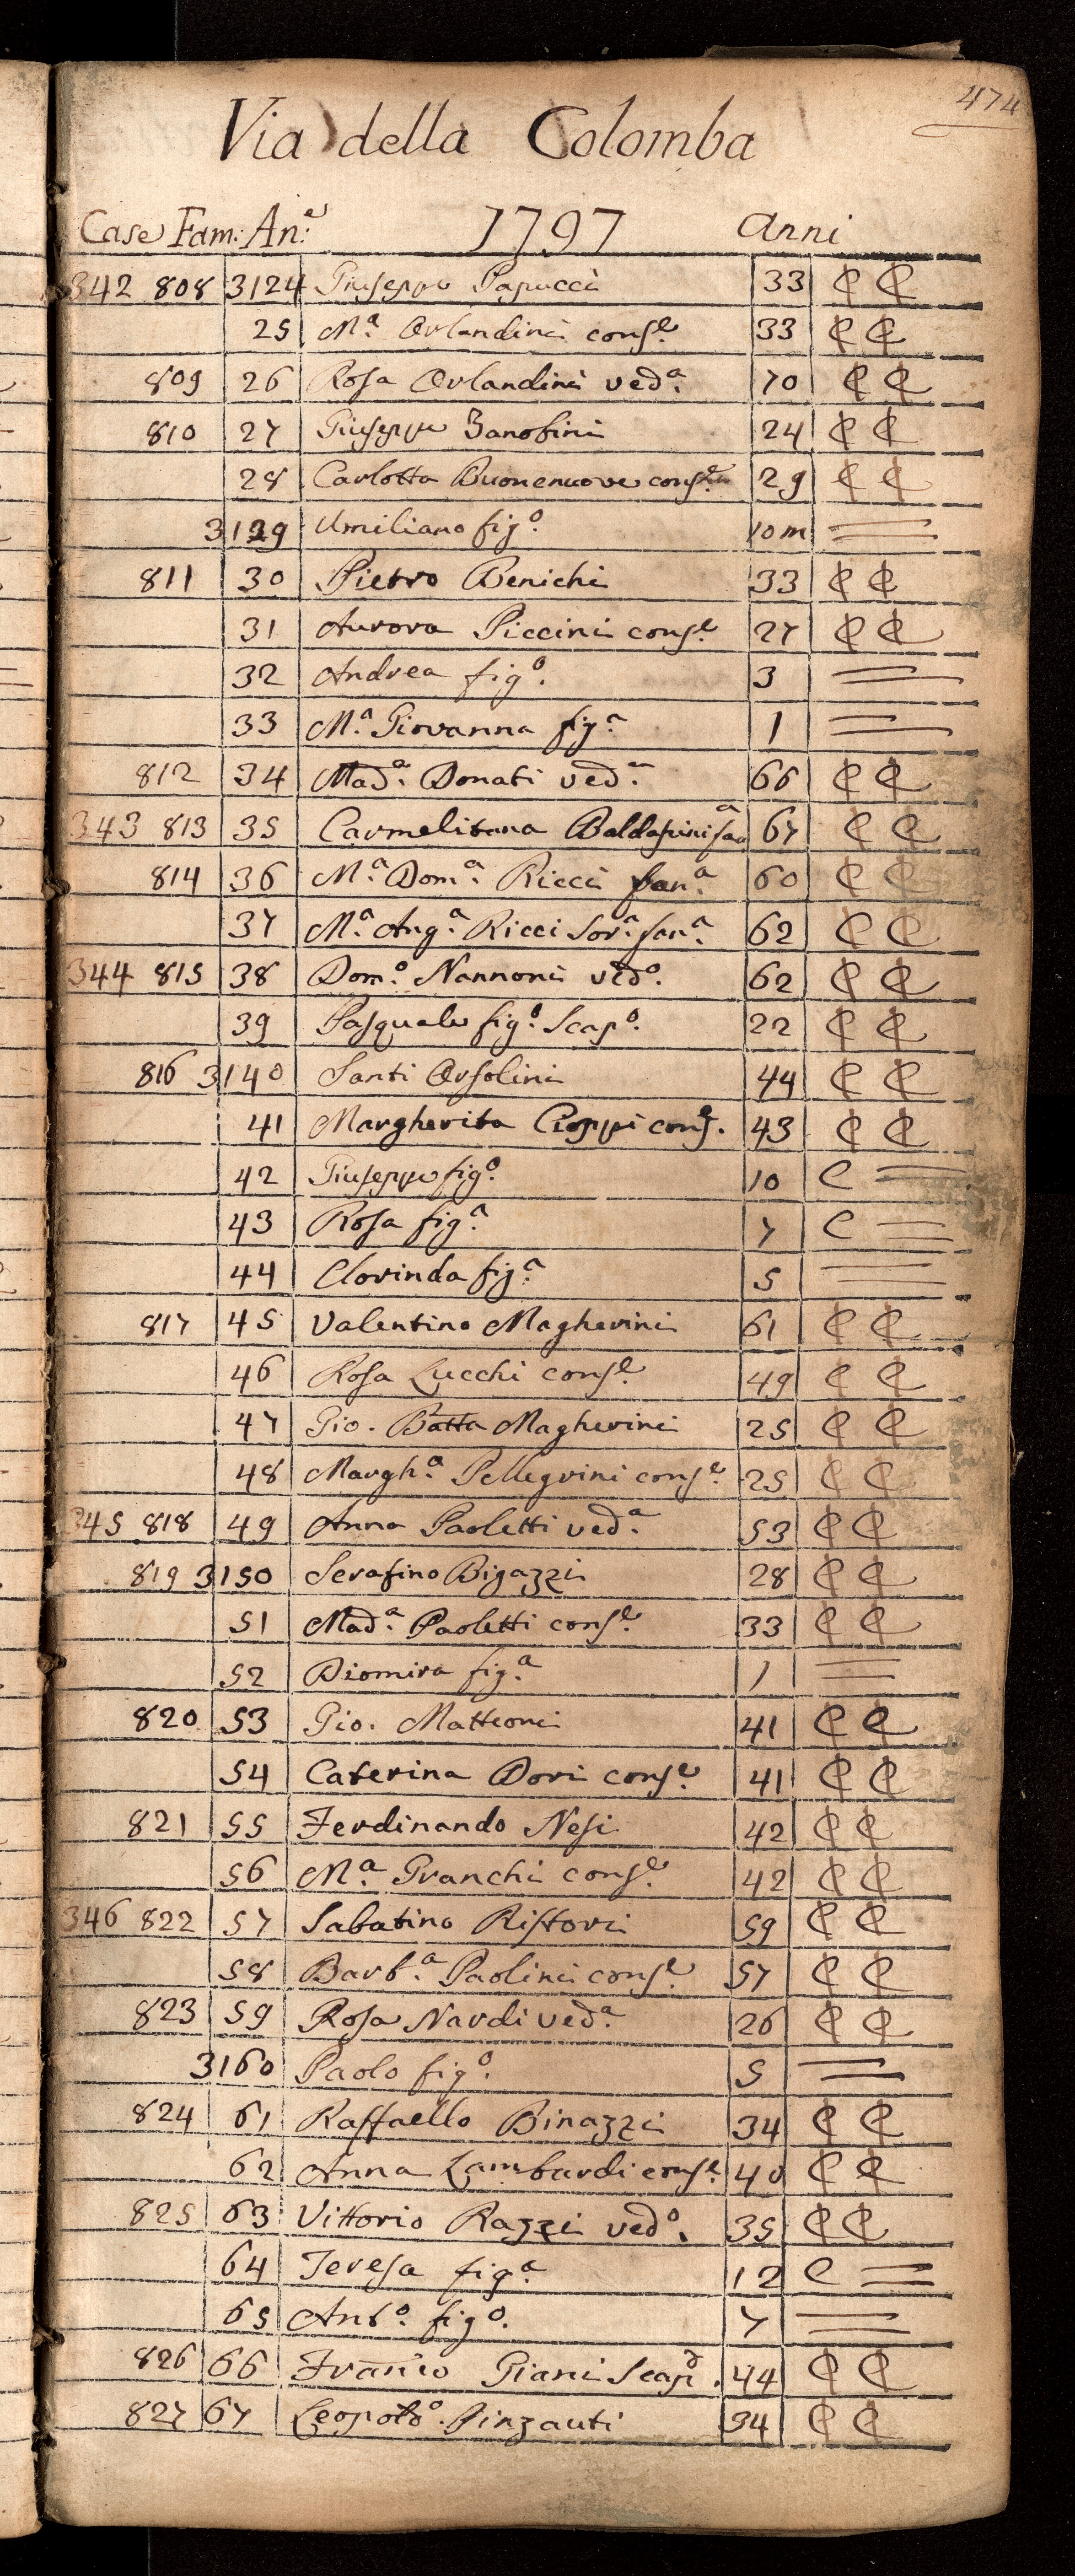 474
Via della Colomba
Case Fam: An.e 1797 Anni
342 808 3124 Giuseppe Papucci 33 C C
25 M.a Orlandini cons.e 33 C C
809 26 Rosa Orlandini ved.a 70 C C
810 27 Giuseppe Zanobini 24 C C
28 Carlotta Buonenuove cons.e 29 C C
3129 Umiliano fig.o 10 m
811 30 Pietro Benichi 33 C C
31 Aurora Piccini cons.e 27 C C
32 Andrea fig.o 3
33 M.a Giovanna fig.a 1
812 34 Mad.a Donati ved.a 66 C C
343 813 35 Carmelitana Baldasini fan.a 67 C C
814 36 M.a Dom.a Ricci fan.a 60 C C
37 M.a Ang.a Ricci Sor.a fan.a 62 C C
344 815 38 Dom.o Nannoni ved.o 62 C C
39 Pasquale fig.o Scap.o 22 C C
816 3140 Santi Orsolini 44 C C
41 Margherita Cioppi cons.e 43 C C
42 Giuseppe fig.o 10 C
43 Rosa fig.a 7 C
44 Clorinda fig.a 5
817 45 Valentino Magherini 61 C C
46 Rosa Lucchi cons.e 49 C C
47 Gio. Batta Magherini 25 C C
48 Margh.a Pellegrini cons.e 25 C C
345 818 49 Anna Paoletti ved.a 53 C C
819 3150 Serafino Bigazzi 28 C C
51 Mad.a Paoletti cons.e 33 C C
52 Diomira fig.a 1
820 53 Gio. Matteoni 41 C C
54 Caterina Dori cons.e 41 C C
821 55 Ferdinando Nesi 42 C C
56 M.a Granchi cons.e 42 C C
346 822 57 Sabatino Ristori 59 C C
58 Barb.a Paolini cons.e 57 C C
823 59 Rosa Nardi ved.a 26 C C
3160 Paolo fig.o 5
824 61 Raffaello Binazzi 34 C C
62 Anna Lambardi cons.e 40 C C
825 63 Vittorio Razzi ved.o 35 C C
64 Teresa fig.a 12 C
65 Ant.o fig.o 7
826 66 Franco Giani Scap.o 44 C C
827 67 Leopoldo. Pinzauti 34 C C